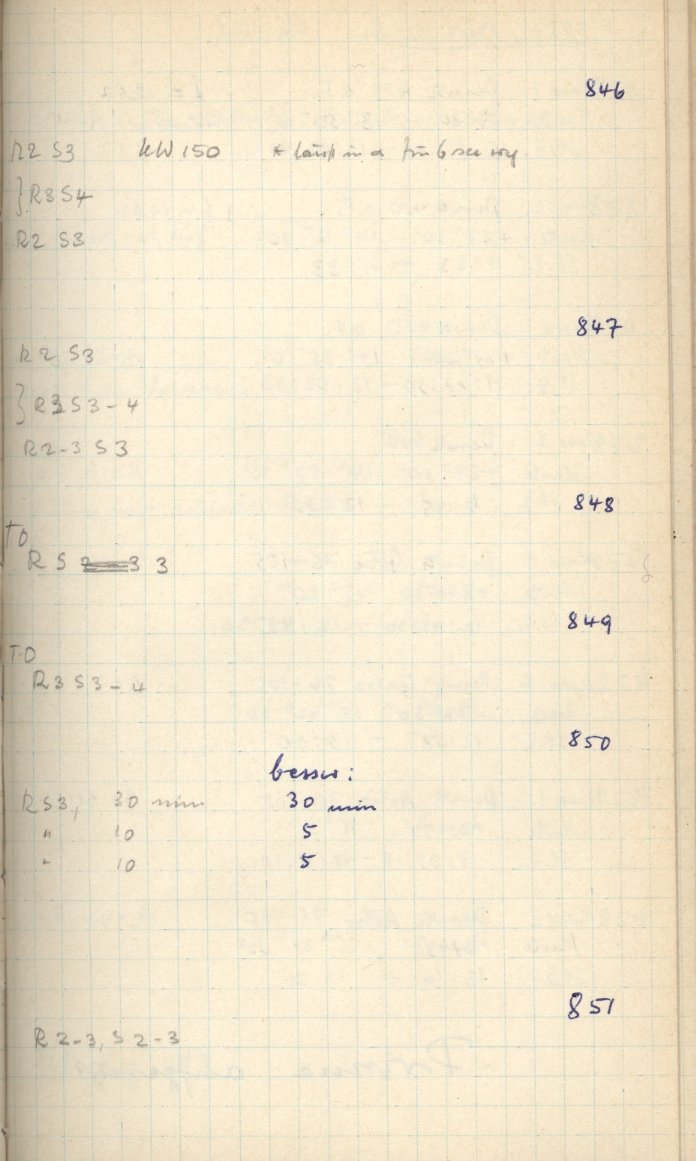 846
R2 S3 KW 150 * in a
} R3 S4
R2 S3
847
R2 S3
} R3 S3-4
R2-3 S3
848
TO
R S 2-3 3
849
TO
R3 S3-4
850
besser:
RS3, 30 min 30 min
" 10 5
" 10 5
851
R2-3, S 2-3